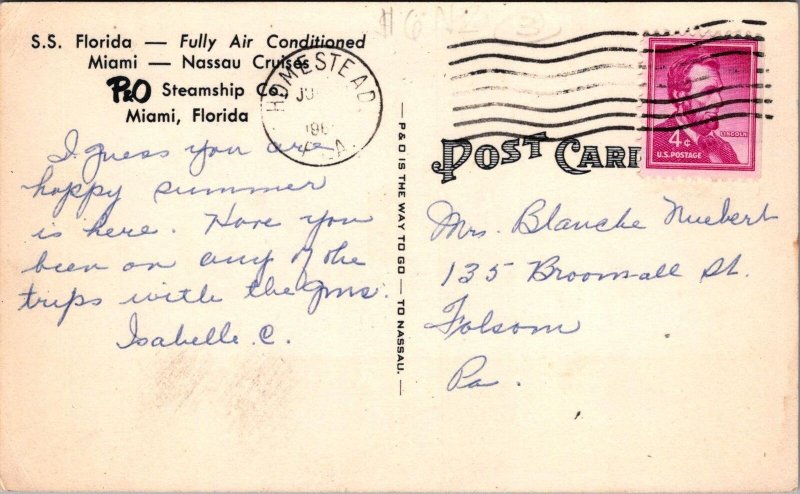 S.S. Florida — Fully Air Conditioned
Miami — Nassau Cruises
P&O Steamship Co.
Miami, Florida
HOMESTEAD
JU
196
FLA.
I guess you are
happy summer
is here. Have you
been on any of the
trips with the
Isabelle C.
— P & O IS THE WAY TO GO — TO NASSAU. —
POST CARD
LINCOLN
4¢
U.S. POSTAGE
Mrs. Blanche Niebert
135 Broomall St.
Folsom
Pa.